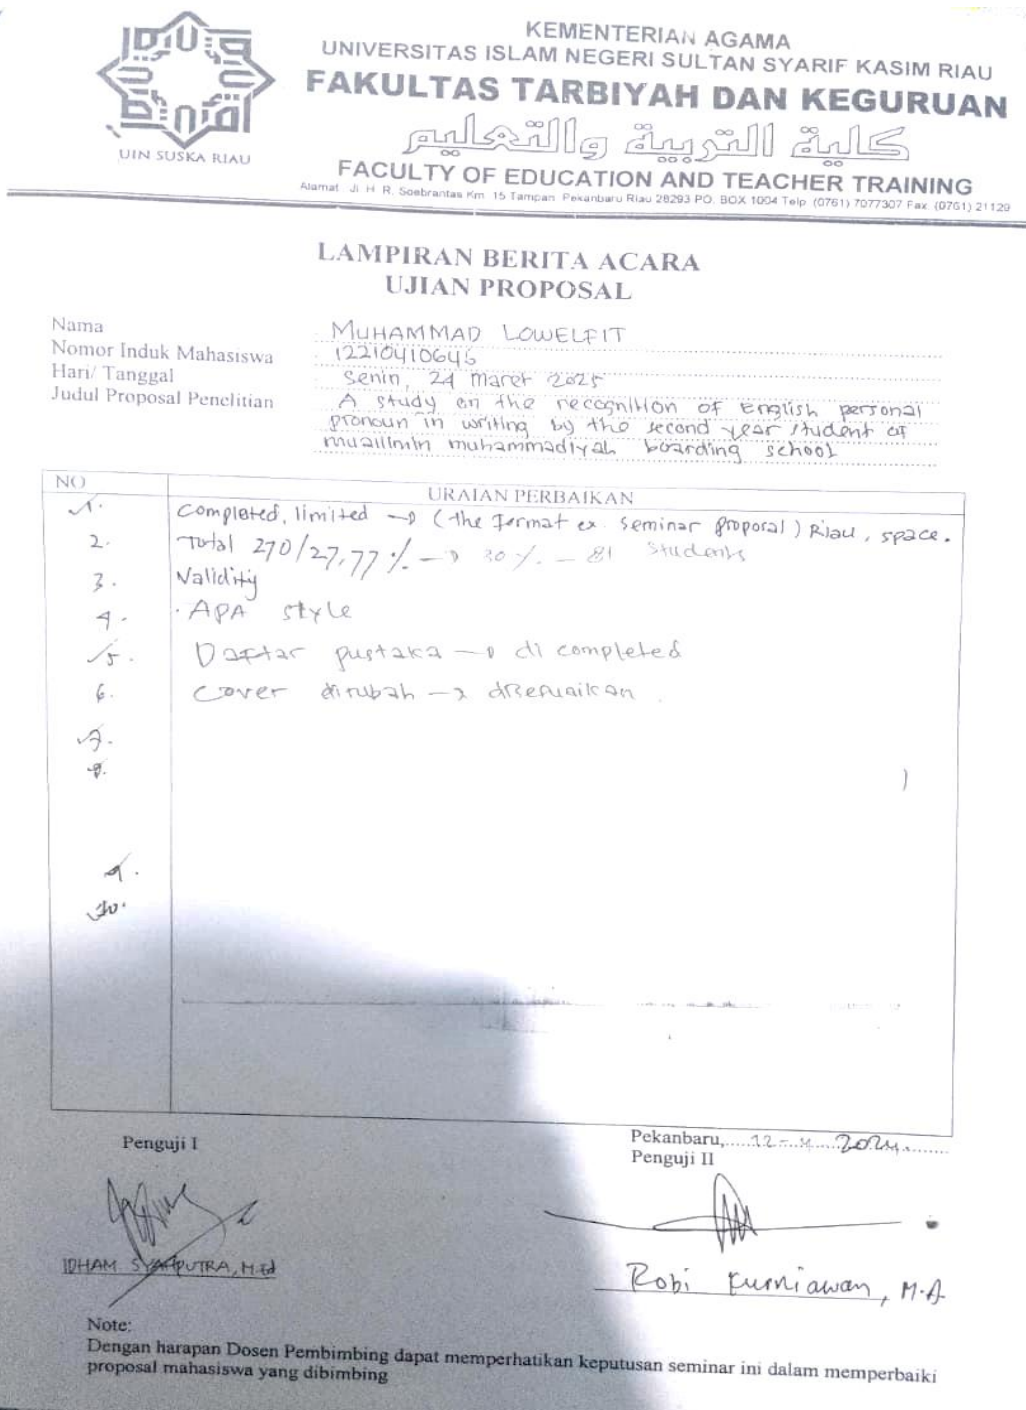 UIN SUSKA RIAU
KEMENTERIAN AGAMA
UNIVERSITAS ISLAM NEGERI SULTAN SYARIF KASIM RIAU
FAKULTAS TARBIYAH DAN KEGURUAN
كلية التربية والتعليم
FACULTY OF EDUCATION AND TEACHER TRAINING
Alamat Jl. H. R. Soebrantas Km. 15 Tampan Pekanbaru Riau 28293 PO. BOX 1004 Telp. (0761) 7077307 Fax. (0761) 21129
LAMPIRAN BERITA ACARA
UJIAN PROPOSAL
Nama : MUHAMMAD LOWELFIT
Nomor Induk Mahasiswa : 12210410646
Hari/ Tanggal : Senin, 24 maret 2025
Judul Proposal Penelitian : A study on the recognition of English personal
pronoun in writing by the second year student of
muallimin muhammadiyah boarding school
NO URAIAN PERBAIKAN
1. Completed, limited → (the format ex. seminar proposal) Riau, space.
2. Total 270/27,77 % → 30 % - 81 Students
3. Validity
4. APA style
5. Daftar pustaka → di completed
6. Cover dirubah → disesuaikan
7.
8.
9.
10.
Pekanbaru, 2024
Penguji I Penguji II
IDHAM SYAHPUTRA, M.Ed
Robi Kurniawan, M.A
Note:
Dengan harapan Dosen Pembimbing dapat memperhatikan keputusan seminar ini dalam memperbaiki
proposal mahasiswa yang dibimbing